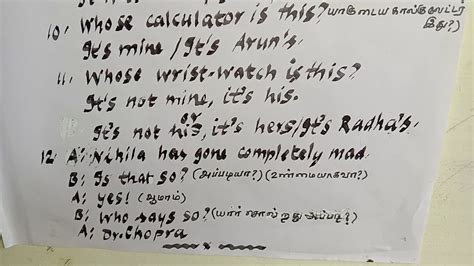 10. Whose calculator is this? யாருடைய கால்குலேட்டர் இது?)
It's mine / It's Arun's.
11. Whose wrist-watch is this?
It's not mine, it's his.
or
It's not his, it's hers/It's Radha's.
12. A: Nihila has gone completely mad.
B: Is that so? (அப்படியா?) (உண்மையாகவா?)
A: yes! (ஆமாம்)
B: Who says so? (யார் சொல்றது அப்படி?)
A: Dr. Chopra